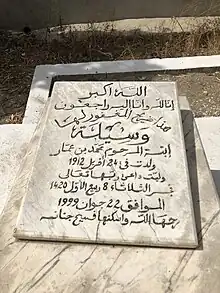 الله اكبر
إنا لله وإنا إليه راجعون
هذا ضريح المغفور لها
وسيلة
إبنة المرحوم محمد بن عمار
ولدت في 24 افريل 1912
ولبت داعي ربها تعالى
في الثلاثاء 8 ربيع الأول 1420
الموافق 22 جوان 1999
رحمها الله واسكنها فسيح جنانه